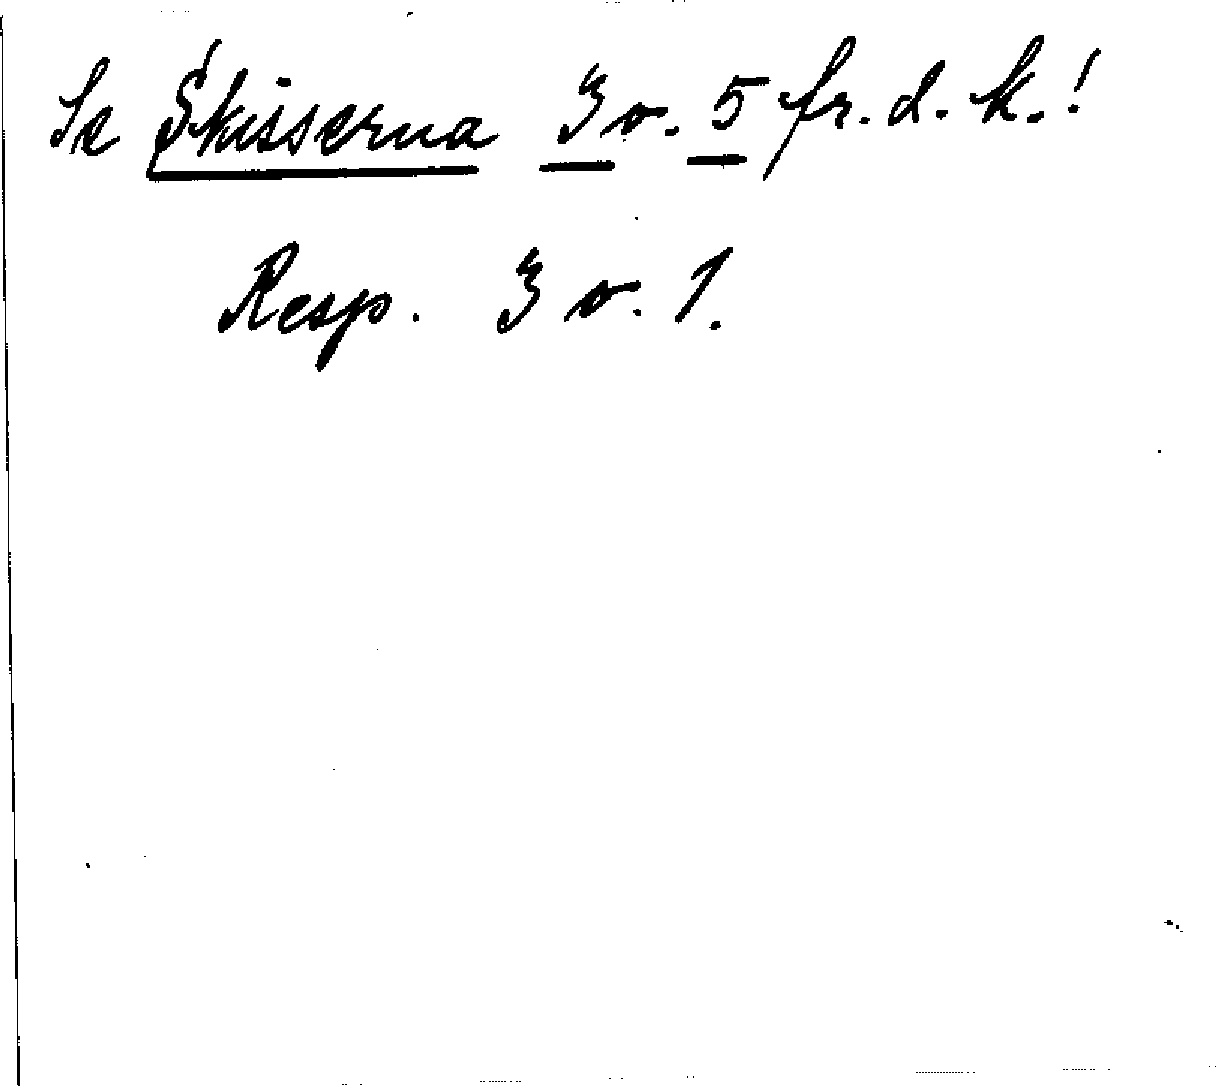 Se Skisserna 3 o. 5 fr. d. k.!
Resp. 3 o. 1.